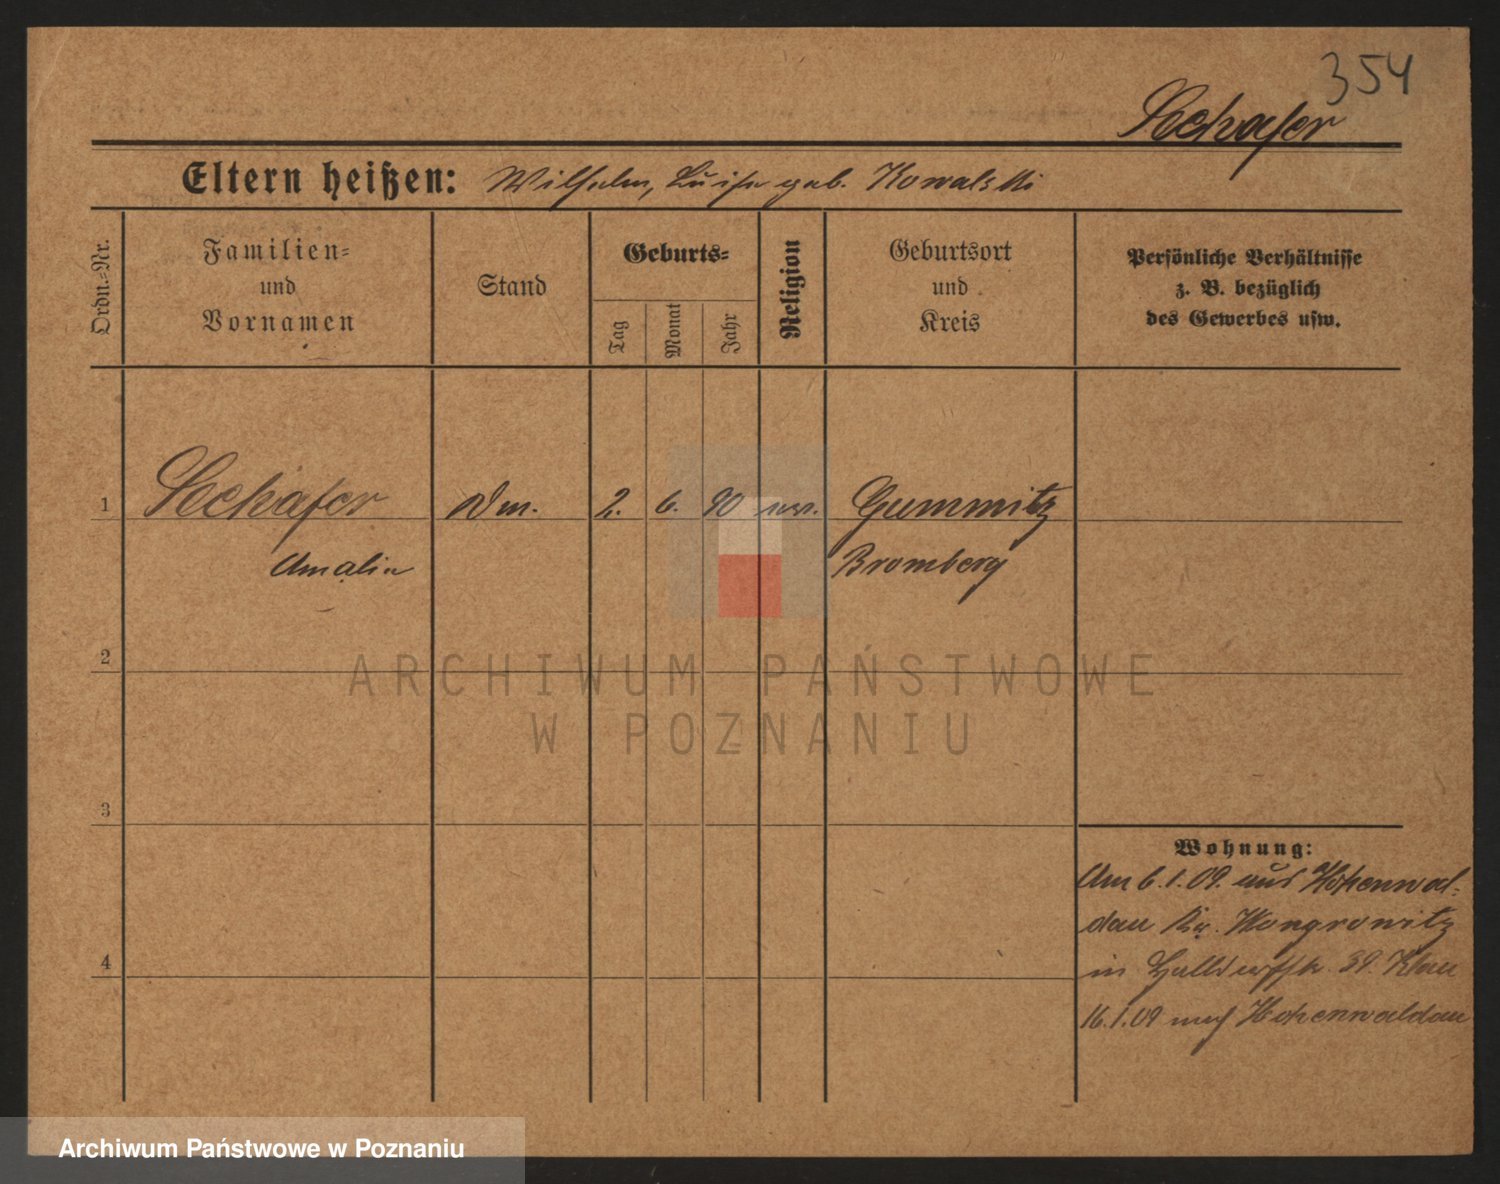 354
Schafer
Eltern heißen: Wilhelm, Luise geb. Kowalski
Ordn.-Nr.
Familien-
und
Vornamen
Stand
Geburts-
Tag
Monat
Jahr
Religion
Geburtsort
und
Kreis
Persönliche Verhältnisse
z. B. bezüglich
des Gewerbes usw.
1 Schafer 2. 6. 90 Gummitz
Amalie Bromberg
2
ARCHIWUM PAŃSTWOWE
W POZNANIU
3
Wohnung:
Am 6.1.09. aus Hohenwal-
dau Kr. Wongrowitz
4
in 39.
16.1.09 nach Hohenwaldau
Archiwum Państwowe w Poznaniu